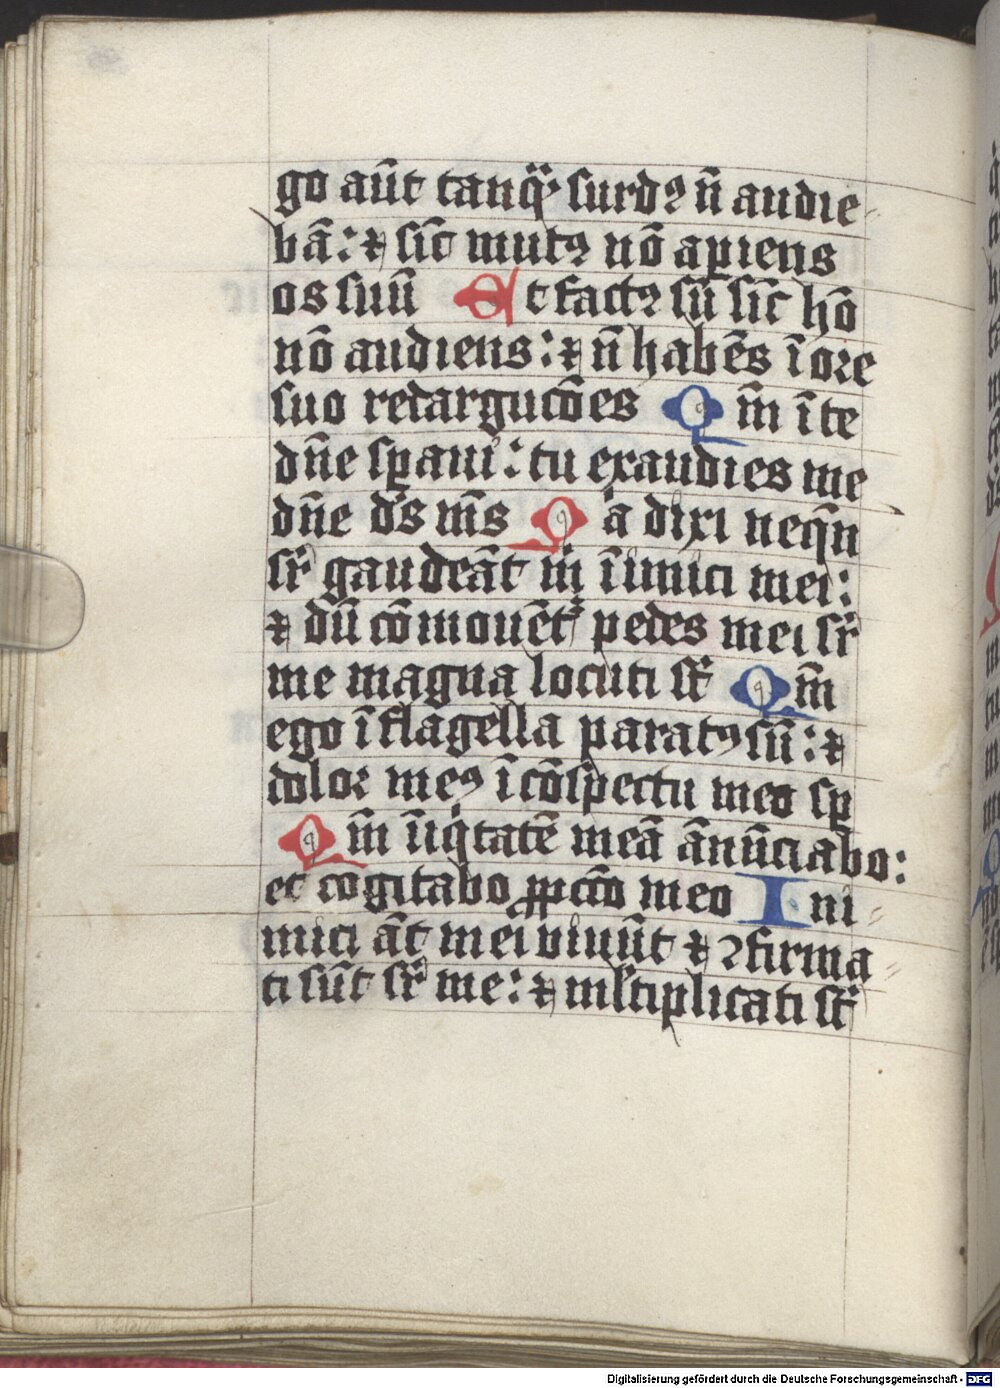 go aūt tanq̈ surdꝰ n̄ audie-
bā: ⁊ sic̄ mutꝰ nō apiens
os suū Et factꝰ sū sic̄ hō
nō audiens: ⁊ n̄ habēs ī ore
suo redargucōes Qm̄ ī te
dn̄e sꝑaui: tu exaudies me
dn̄e ds̄ ms̄ Qa dixi neqn̄
sr̄ gaudeāt m̄ īimici mei:
⁊ dū cōmouēt pedes mei sr̄
me magna locuti st̄ Qm̄
ego ī flagella paratꝰ sū: ⁊
dolor meꝰ ī cōspectu meo sꝑ
Qm̄ īiqtatē meā ānūciabo:
et cogitabo ꝓ pctō meo Ini-
mici āt mei viuūt ⁊ ꝯfirma-
ti sūt sr̄ me: ⁊ ml̄tiplicati st̄
Digitalisierung gefördert durch die Deutsche Forschungsgemeinschaft - DFG